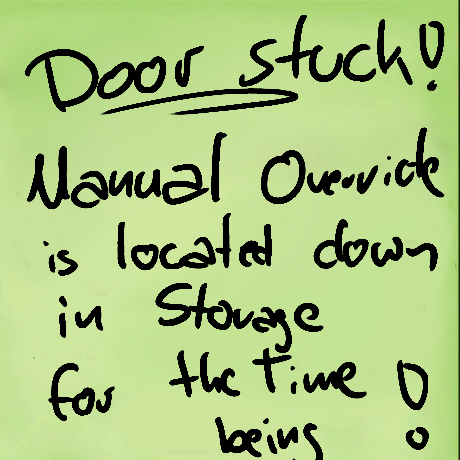 Door stuck!
Manual Override
is located down
in Storage
for the Time
being!